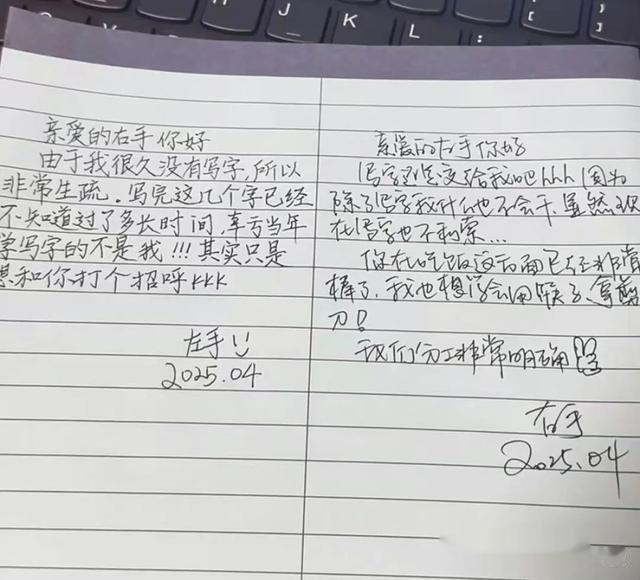 J
K
L
亲爱的右手你好
由于我很久没有写字,所以
非常生疏。写完这几个字已经
不知道过了多长时间,幸亏当年
学写字的不是我!!!其实只是
想和你打个招呼kkk
左手
2025.04
亲爱的左手你好
写字还是交给我吧hhh(因为
除了写字我什么也不会干,虽然现
在写字也不利索...
你在吃饭这方面已经非常
棒了,我也想学会用筷子、拿剪
刀!
我们分工非常明确
右手
2025.04